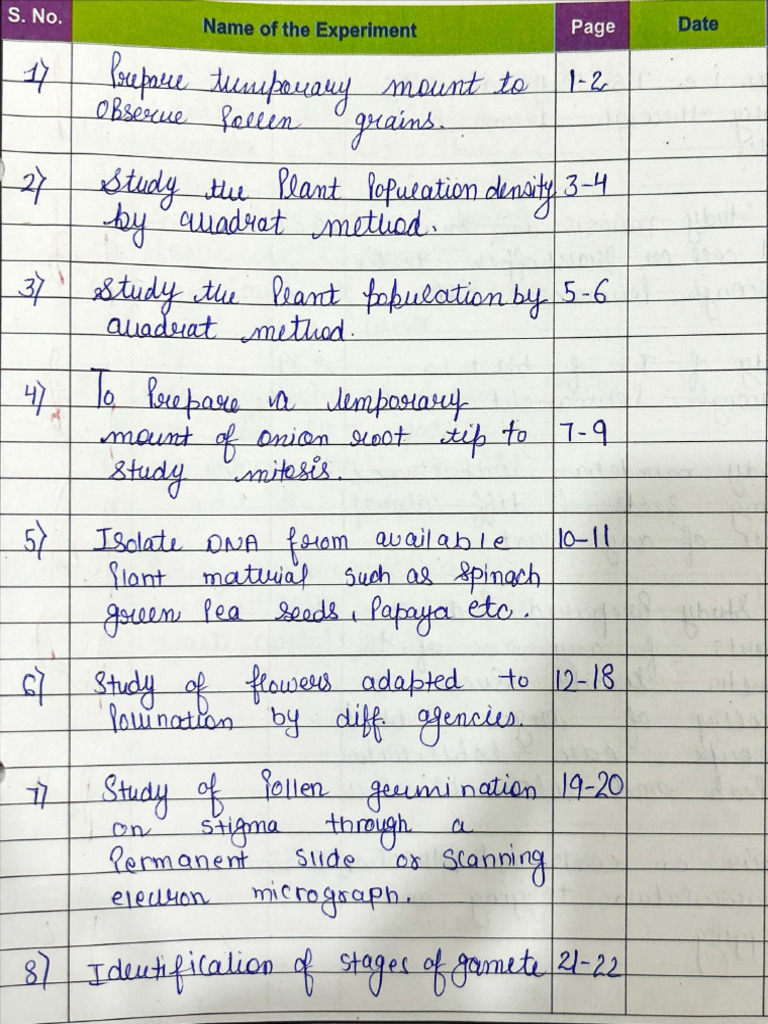 S. No. Name of the Experiment Page Date
1) Prepare temporary mount to 1-2
observe Pollen grains.
2) Study the Plant Population density 3-4
by quadrat method.
3) Study the Plant population by 5-6
quadrat method.
4) To Prepare a temporary
mount of onion root tip to 7-9
study mitosis.
5) Isolate DNA from available 10-11
Plant material such as spinach
green Pea seeds, Papaya etc.
6) Study of flowers adapted to 12-18
Pollination by diff. agencies.
7) Study of Pollen germination 19-20
on stigma through a
Permanent slide or scanning
electron micrograph.
8) Identification of stages of gamete 21-22